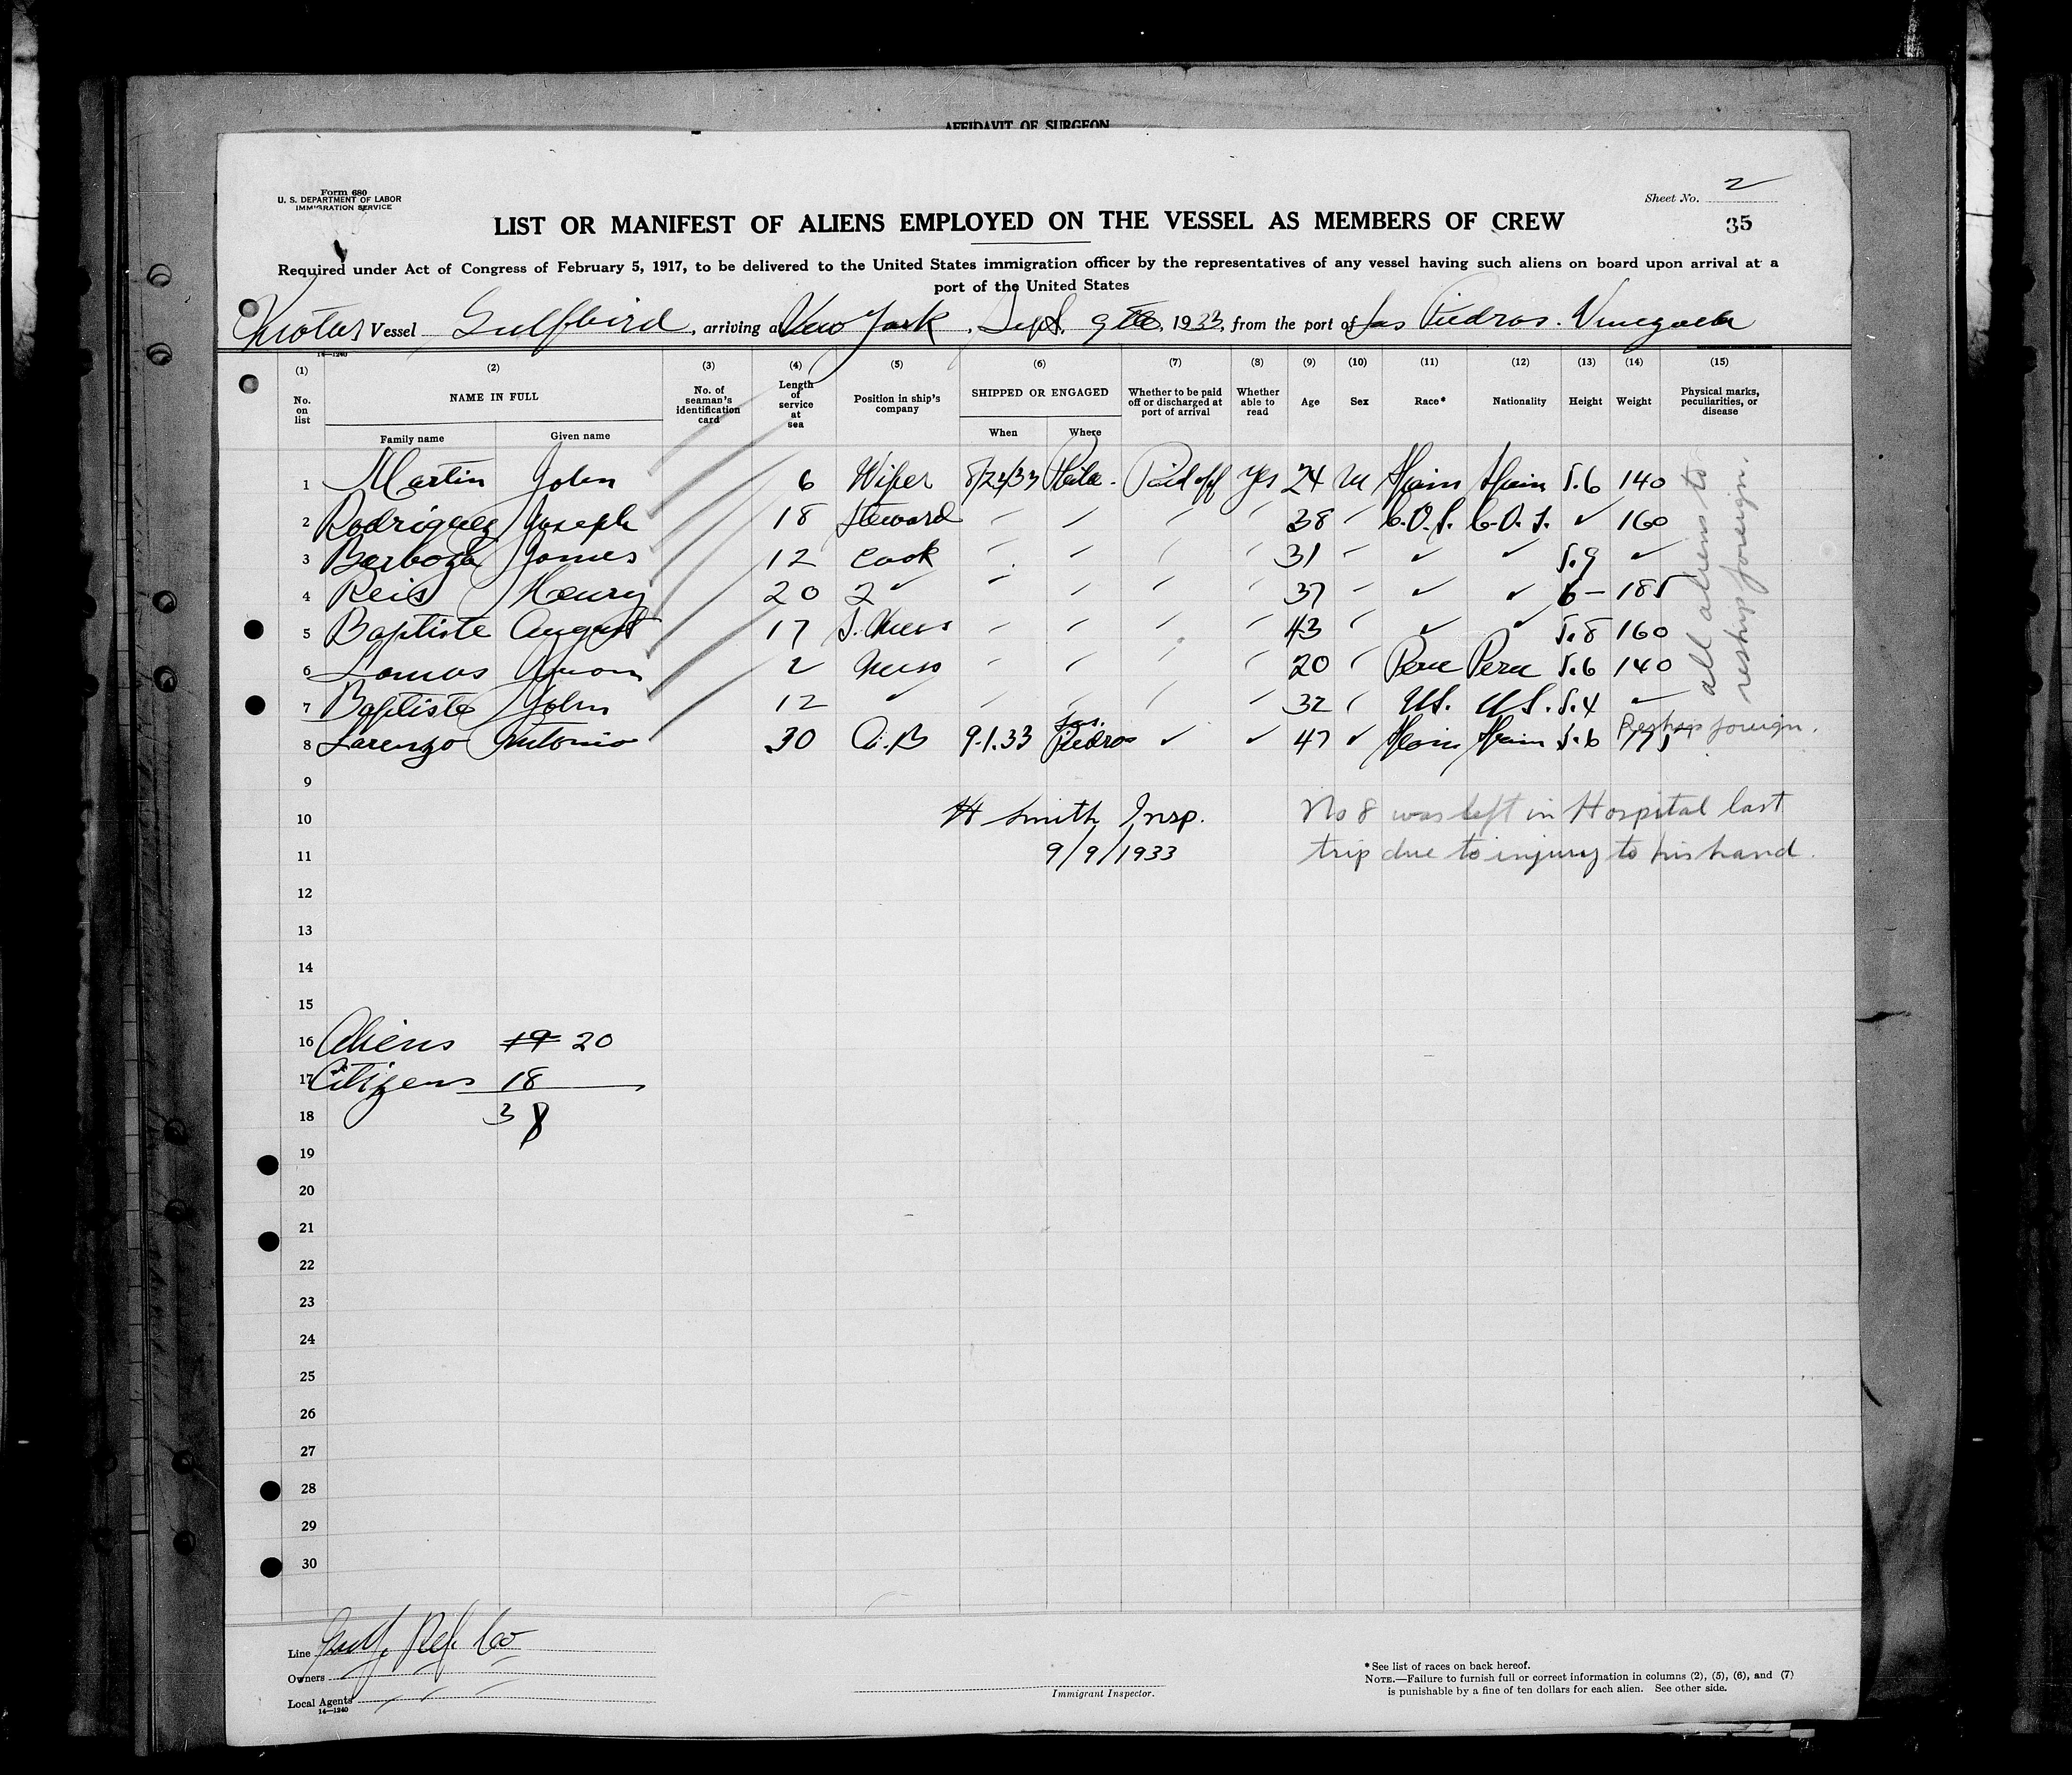 AFFIDAVIT OF SURGEON
Form 680
U. S. DEPARTMENT OF LABOR
IMMIGRATION SERVICE
Sheet No. 2
35
LIST OR MANIFEST OF ALIENS EMPLOYED ON THE VESSEL AS MEMBERS OF CREW
Required under Act of Congress of February 5, 1917, to be delivered to the United States immigration officer by the representatives of any vessel having such aliens on board upon arrival at a
port of the United States
Vessel Gulfbird, arriving at New York, Sept. 9th, 1933, from the port of Las Piedras. Venezuela
14—1240
(1) (2) (3) (4) (5) (6) (7) (8) (9) (10) (11) (12) (13) (14) (15)
No. on list NAME IN FULL No. of seaman's identification card Length of service at sea Position in ship's company SHIPPED OR ENGAGED Whether to be paid off or discharged at port of arrival Whether able to read Age Sex Race* Nationality Height Weight Physical marks, peculiarities, or disease
Family name Given name When Where
1 Martin John 6 Wiper 8/24/33 Phila. Paid off Yes 24 M Spain Spain 5.6 140
2 Rodriguez Joseph 18 Steward 38 160
3 Barboza James 12 Cook 31 5.9
4 Reis Henry 20 2 37 6 — 185
5 Baptiste August 17 43 5.8 160
6 Lamas 2 Mess 20 Peru Peru 5.6 140
7 Baptiste John 12 32 U.S. U.S. 5.4
8 Lorenzo Antonio 30 A.B 9.1.33 Las Piedras 47 Spain Spain 5.6 175 Reship foreign.
all aliens to
reship foreign.
9
10 H Smith Insp. No 8 was left in Hospital last
11 9/9/1933 trip due to injury to his hand.
12
13
14
15
16 Aliens 19 20
17 Citizens 18
18 38
19
20
21
22
23
24
25
26
27
28
29
30
Line Gulf. Ref. Co
Owners
Local Agents
14—1240
Immigrant Inspector.
* See list of races on back hereof.
NOTE.—Failure to furnish full or correct information in columns (2), (5), (6), and (7)
is punishable by a fine of ten dollars for each alien. See other side.